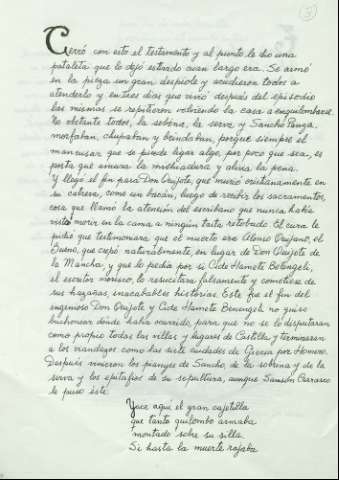 5
Cerró con esto el testamento y al punto le dio una
pataleta que lo dejó estirado cuan largo era. Se armó
en la pieza un gran despiole y acudieron todos a
atenderlo y en tres días que vivió después del episodio
las mismas se repitieron volviendo la casa a enquilombarse.
No obstante todos, la sobrina, la serva y Sancho Panza,
morfaban, chupaban y brindaban, porque siempre el
mancusar que se puede ligar algo, por poco que sea, es
posta que amura la mochiadura y alivia la pena.
Y llegó el fin para Don Quijote, que murió cristianamente en
su catrera, como un bacán, luego de recibir los sacramentos,
cosa que llamó la atención del escribano que nunca había
visto morir en la cama a ningún taita retobado. El cura le
pidió que testimoniara que el muerto era Alonso Quijano, el
Bueno, que crepó naturalmente, en lugar de Don Quijote de
la Mancha, y que lo pedía por si Cide Hamete Benengeli,
el escritor morisco, lo resucitara falsamente y cometiese de
sus hazañas, inacabables historias. Este fue el fin del
ingenioso Don Quijote y Cide Hamete Benengeli no quiso
buchonear dónde había ocurrido, para que no se lo disputaran
como propio todas las villas y lugares de Castilla y terminasen
a los viandazos como las siete ciudades de Grecia por Homero.
Después vinieron los pianyes de Sancho, de la sobrina y de la
serva y los epitafios de su sepultura, aunque Sansón Carrasco
le puso éste:
Yace aquí el gran cajetilla
que tanto quilombo armaba
montado sobre su silla.
Si hasta la muerte rajaba